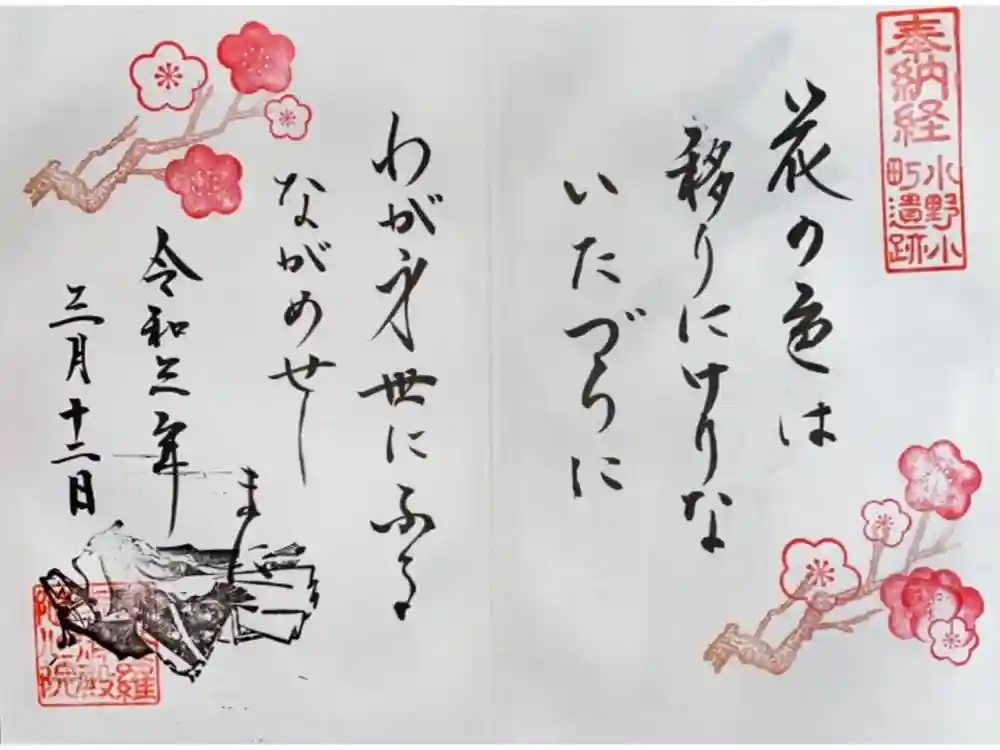 奉納経
小野小
町遺跡
花の色は
移りにけりな
いたづらに
わが身世にふる
ながめせし
まに
令和三年
三月十二日